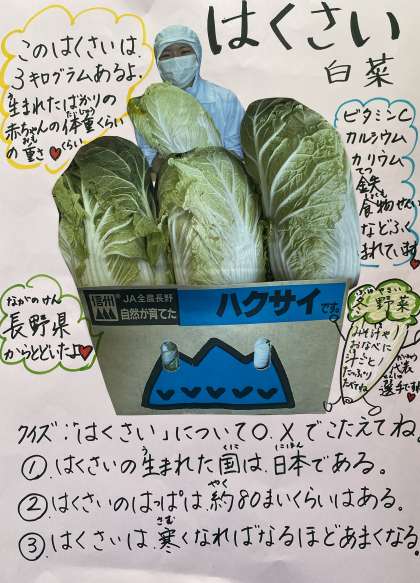 はくさい
白菜
このはくさいは
3キログラムあるよ。
生まれたばかりの
赤ちゃんの体重くらい
の重さ
ビタミンC
カルシウム
カリウム
鉄
食物せんい
などふく
まれています
ながのけん
長野県
からとどいたよ
信州
JA全農長野
自然が育てた
ハクサイです。
冬野菜
代表
選手
クイズ:「はくさい」について〇、×でこたえてね。
① はくさいの生まれた国は、日本である。
② はくさいのはっぱは、約80まいくらいはある。
③ はくさいは、寒くなればなるほどあまくなる。